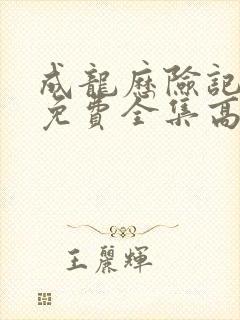 成龍歷險記
免費全集高
王麗輝